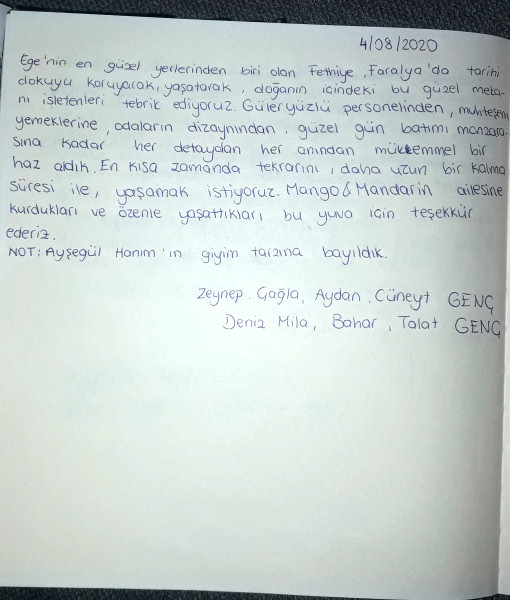 4/08/2020
Ege'nin en güzel yerlerinden biri olan Fethiye, Faralya'da tarihi
dokuyu koruyarak, yaşatarak, doğanın içindeki bu güzel meka-
nı işletenleri tebrik ediyoruz. Güleryüzlü personelinden, muhteşem
yemeklerine, odaların dizaynından, güzel gün batımı manzara-
sına kadar her detaydan her anından mükkemmel bir
haz aldık. En kısa zamanda tekrarını, daha uzun bir kalma
süresi ile, yaşamak istiyoruz. Mango & Mandarin ailesine
kurdukları ve özenle yaşattıkları bu yuva için teşekkür
ederiz.
NOT: Ayşegül Hanım'ın giyim tarzına bayıldık.
Zeynep, Çağla, Aydan, Cüneyt GENÇ
Deniz Mila, Bahar, Talat GENÇ